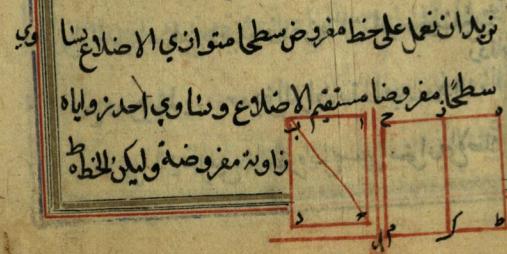 نريد ان نعمل على خط مفروض سطحا متوازي الاضلاع يساوي
سطحًا مفروضا مستقيم الاضلاع ويساوي احد زواياه
زاوية مفروضة وليكن الخط ط
ا ب ح
د ط ك م